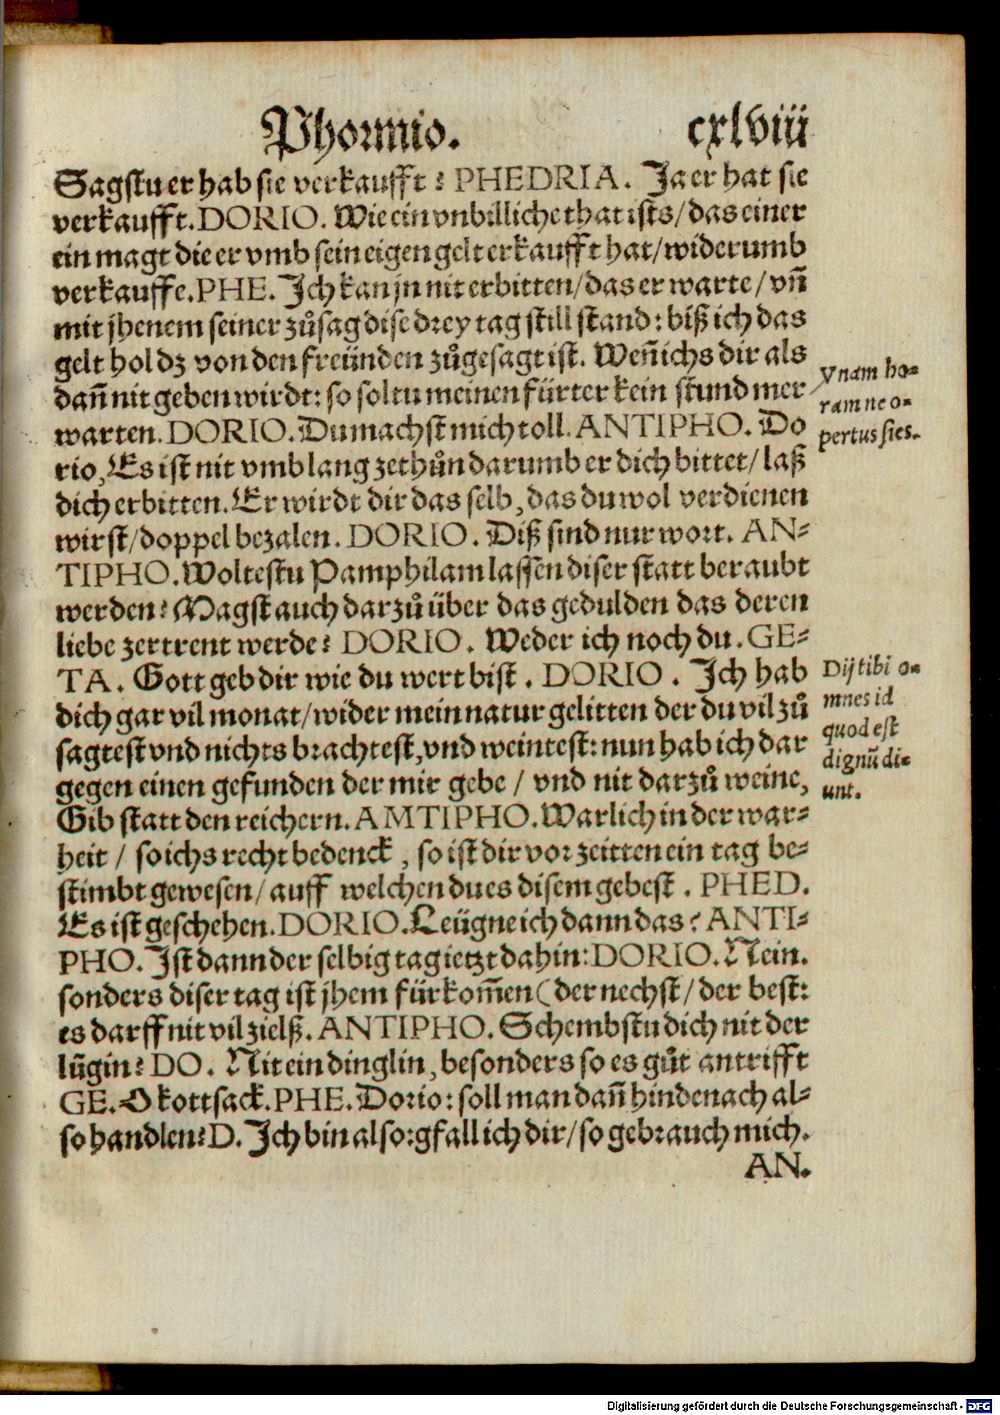 Phormio. cxlviii
Sagstu er hab sie verkaufft? PHEDRIA. Ja er hat sie
verkaufft. DORIO. Wie ein vnbilliche that ists/ das einer
ein magt die er vmb sein eigen gelt erkaufft hat/ widerumb
verkauffe. PHE. Jch kan jn nit erbitten/ das er warte/ vñ
mit jhenem seiner zůsag dise drey tag still stand: biß ich das
gelt hol dz von den freünden zůgesagt ist. Weñ ichs dir als
dañ nit geben wirdt: so soltu meinen fürter kein stund mer
warten. DORIO. Du machst mich toll. ANTIPHO. Do
rio, Es ist nit vmb lang zethůn darumb er dich bittet/ laß
dich erbitten. Er wirdt dir das selb, das du wol verdienen
wirst/ doppel bezalen. DORIO. Diß sind nur wort. AN-
TIPHO. Woltestu Pamphilam lassen diser statt beraubt
werden? Magst auch darzů über das gedulden das deren
liebe zertrent werde? DORIO. Weder ich noch du. GE-
TA. Gott geb dir wie du wert bist. DORIO. Jch hab
dich gar vil monat/ wider mein natur gelitten der du vil zů
sagtest vnd nichts brachtest, vnd weintest: nun hab ich dar
gegen einen gefunden der mir gebe / vnd nit darzů weine,
Gib statt den reichern. AMTIPHO. Warlich in der war-
heit / so ichs recht bedenck, so ist dir vor zeitten ein tag be-
stimbt gewesen/ auff welchen du es disem gebest. PHED.
Es ist geschehen. DORIO. Leügne ich dann das? ANTI-
PHO. Jst dann der selbig tag ietzt dahin: DORIO. Nein.
sonders diser tag ist jhem fürkom̃en (der nechst/ der best:
es darff nit vil zielß. ANTIPHO. Schembstu dich nit der
lůgin? DO. Nit ein dinglin, besonders so es gůt antrifft
GE. O kottsack. PHE. Dorio: soll man dañ hindenach al-
so handlen? D. Jch bin also: gfall ich dir/ so gebrauch mich.
AN.
Vnam ho-
ram ne o-
pertus sies.
Dij tibi o-
mnes id
quod est
dignũ di-
unt.
Digitalisierung gefördert durch die Deutsche Forschungsgemeinschaft - DFG